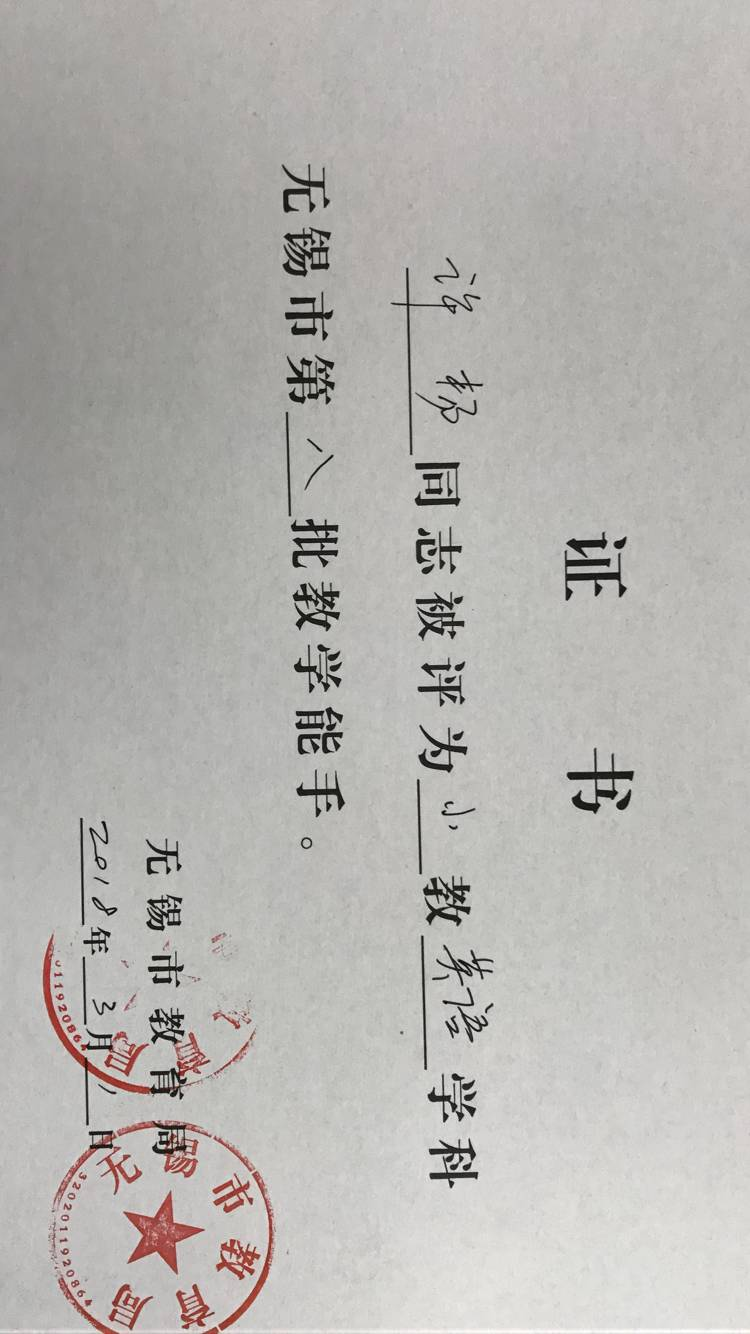 证书
许杨同志被评为小教英语学科
无锡市第八批教学能手。
无锡市教育局
2018年3月1日
无锡市教育局
3202011920864
育局
011920864